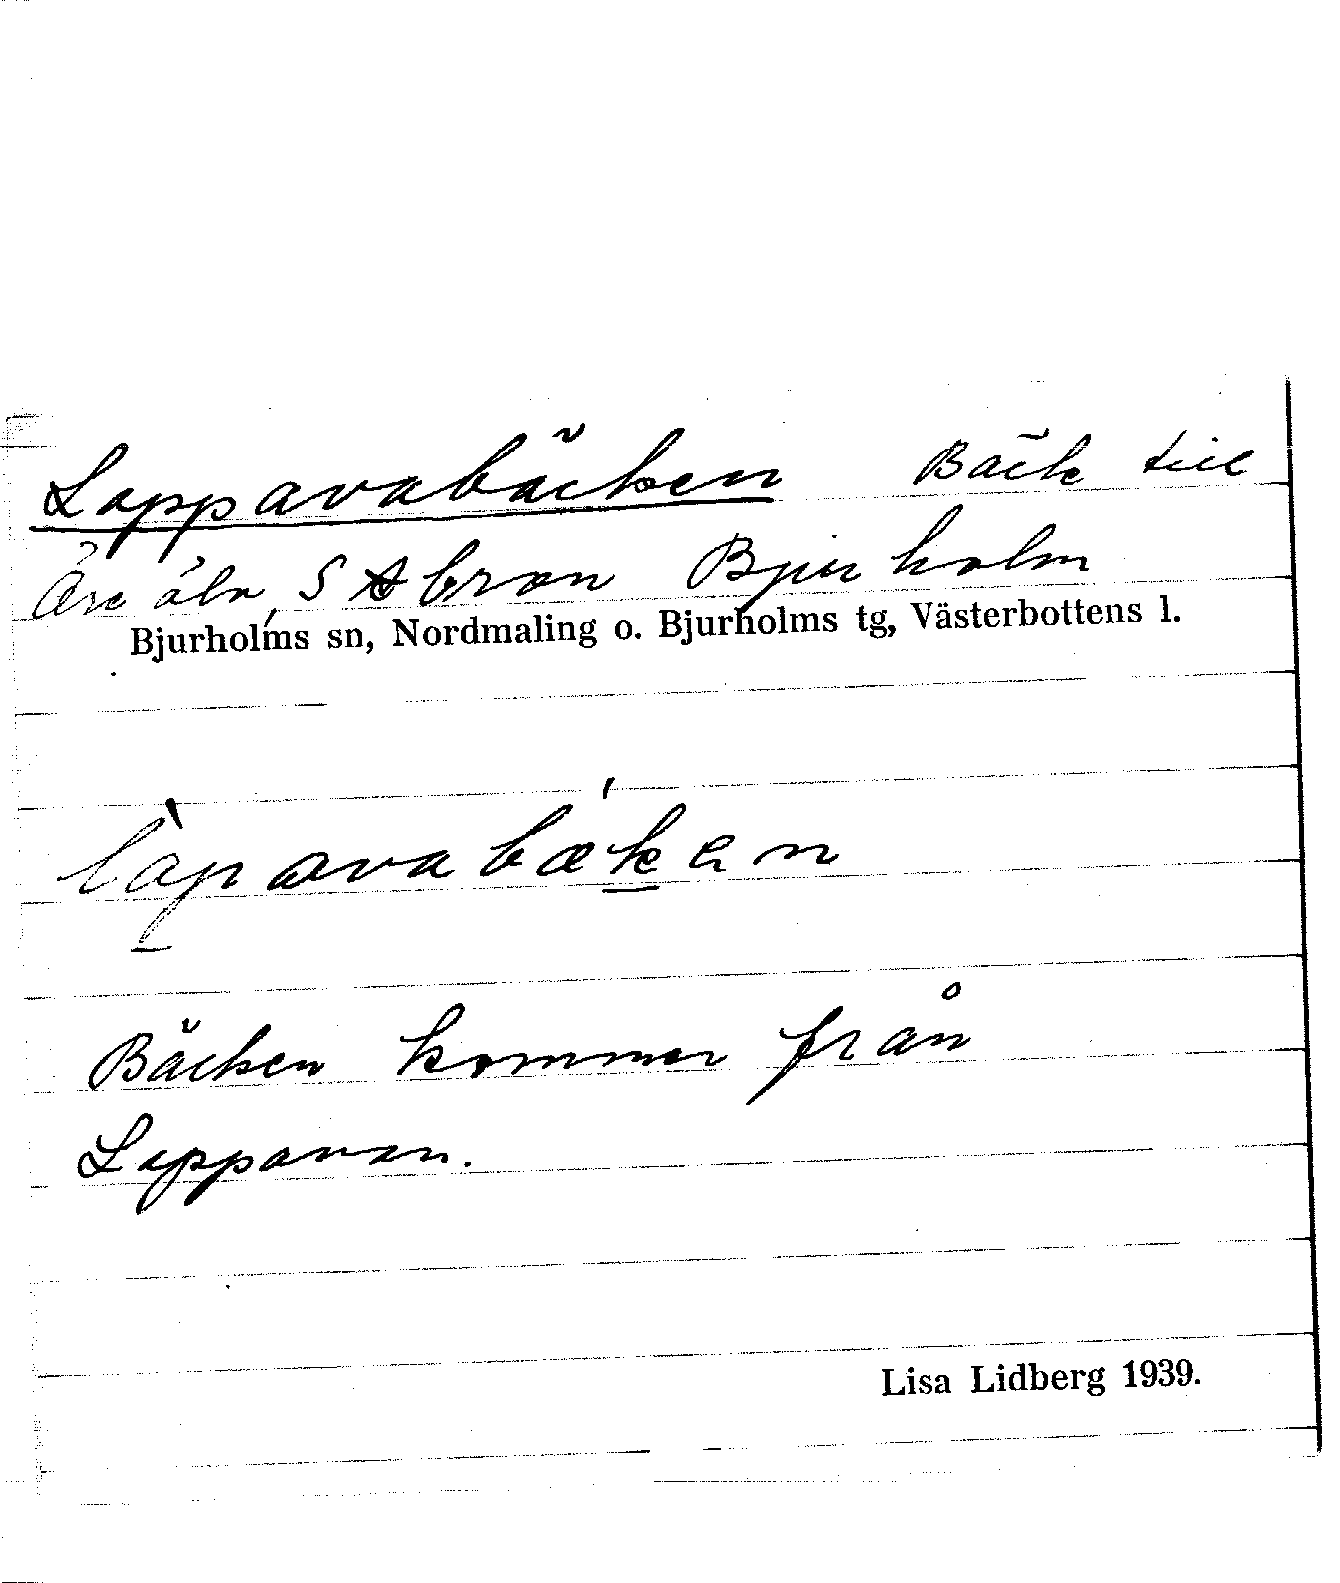 Lappavabäcken Bäck till
Öre älv, S Abron Bjurholm
Bjurholms sn, Nordmaling o. Bjurholms tg, Västerbottens l.
làpavabæ'ken
Bäcken kommer från
Lappavan.
Lisa Lidberg 1939.